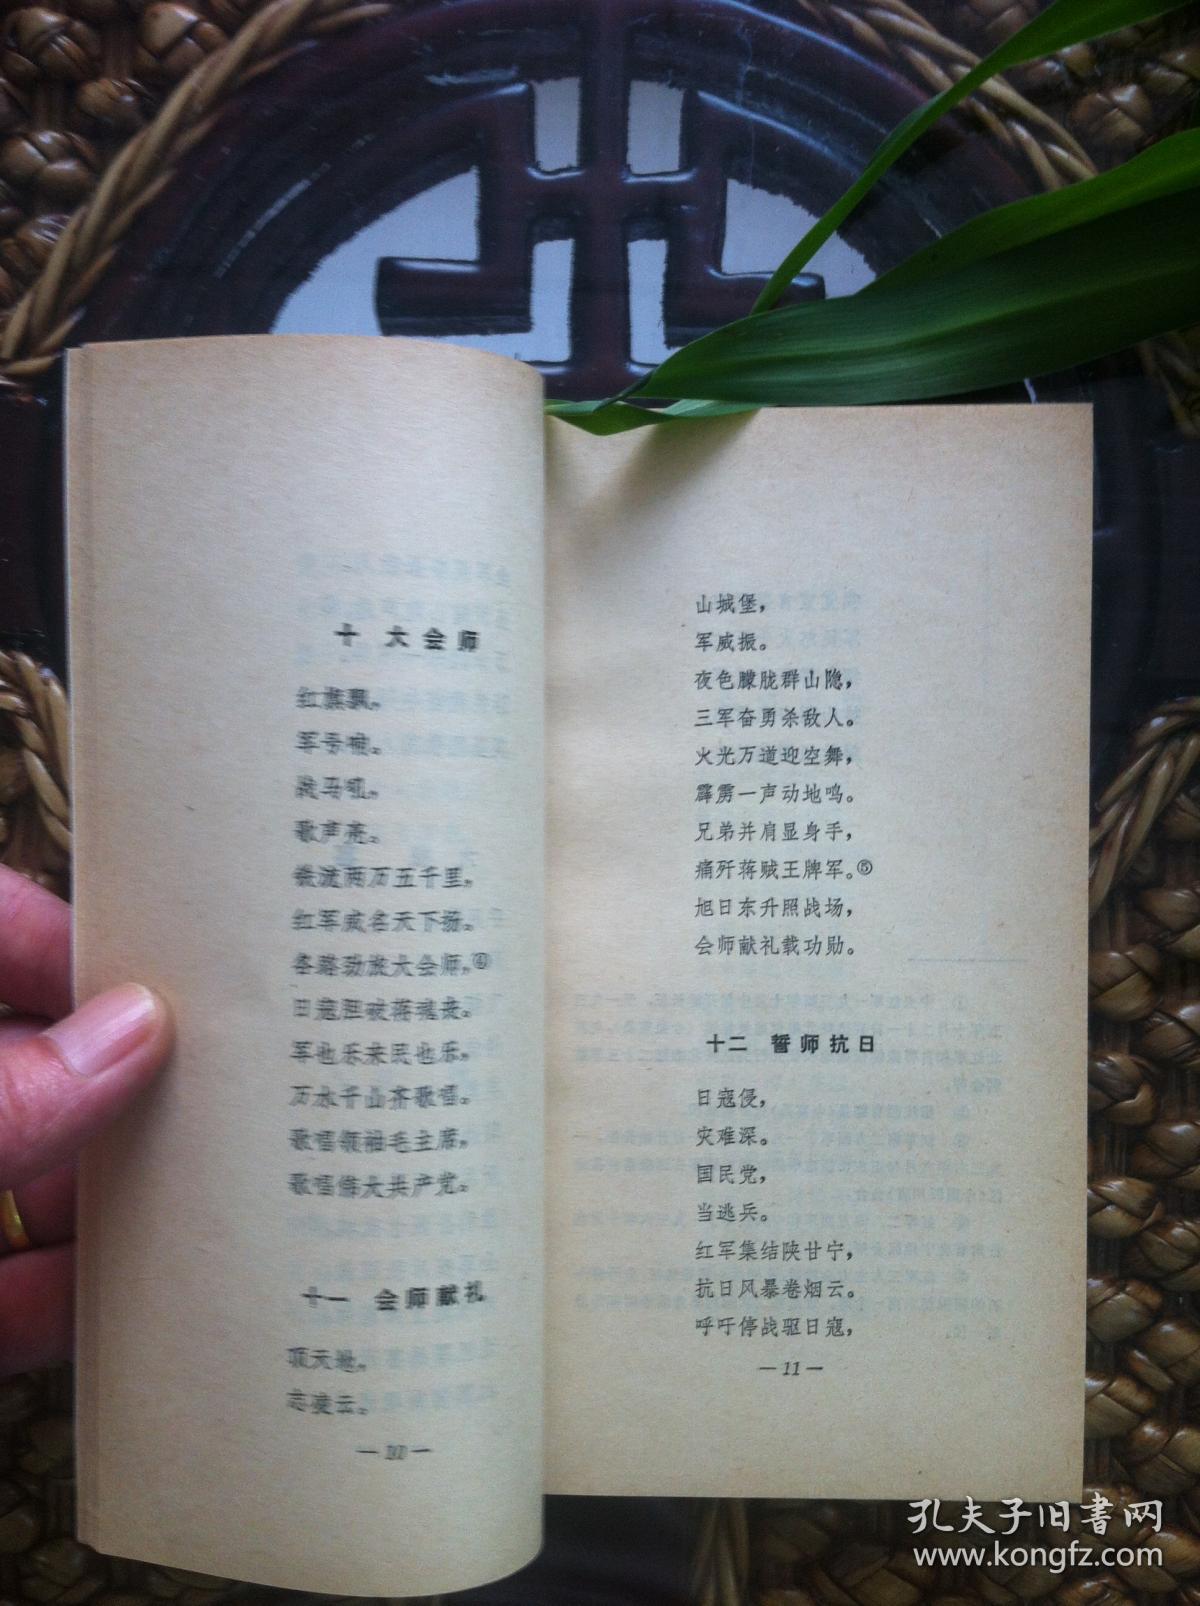 十 大会师
红旗飘,
军号响。
战马吼,
歌声亮。
铁流两万五千里,
红军威名天下扬。
各路劲旅大会师,④
日寇胆破蒋魂丧。
军也乐来民也乐,
万水千山齐歌唱。
歌唱领袖毛主席,
歌唱伟大共产党。
十一 会师献礼
顶天地,
志凌云。
—10—
山城堡,
军威振。
夜色朦胧群山隐,
三军奋勇杀敌人。
火光万道迎空舞,
霹雳一声动地鸣。
兄弟并肩显身手,
痛歼蒋贼王牌军。⑤
旭日东升照战场,
会师献礼载功勋。
十二 誓师抗日
日寇侵,
灾难深。
国民党,
当逃兵。
红军集结陕甘宁,
抗日风暴卷烟云。
呼吁停战驱日寇,
—11—
孔夫子旧书网
www.kongfz.com